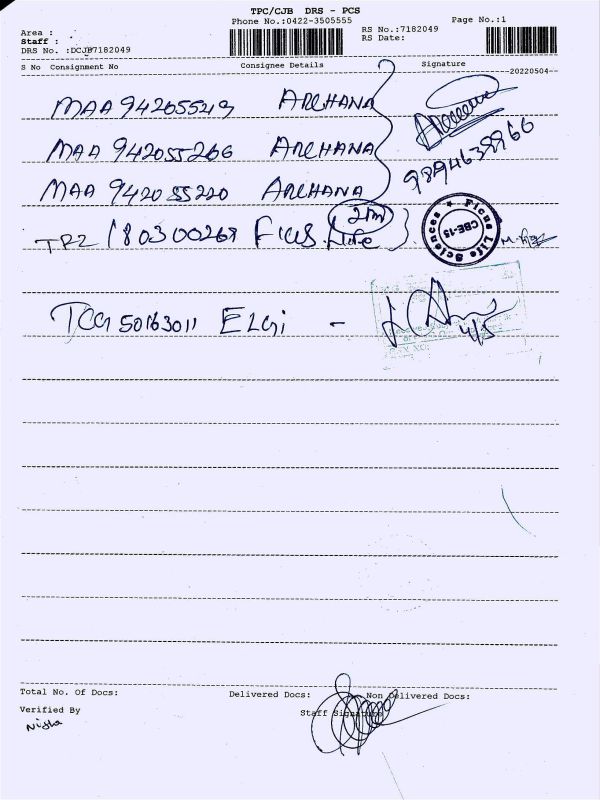 TPC/CJB DRS - PCS
Phone No.:0422-3505555
Page No.:1
Area :
Staff :
DRS No. :DCJB7182049
RS No.:7182049
RS Date:
S No Consignment No Consignee Details Signature
20220504
MAA 942055249 ARCHANA
MAA 942055266 ARCHANA
9894638966
MAA 942055220 ARCHANA
TRZ 180300269 Ficus Life
Ficus Life Sciences
CBE-15
TCG 50163011 ELGi -
4/5
Total No. Of Docs: Delivered Docs: Non Delivered Docs:
Verified By Staff Signature
Nisha